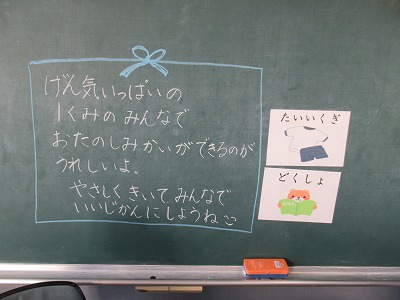 げん気いっぱいの
1くみの みんなで
おたのしみかいができるのが
うれしいよ。
やさしく きいて みんなで
いいじかんに しようね
たいいくぎ
どくしょ